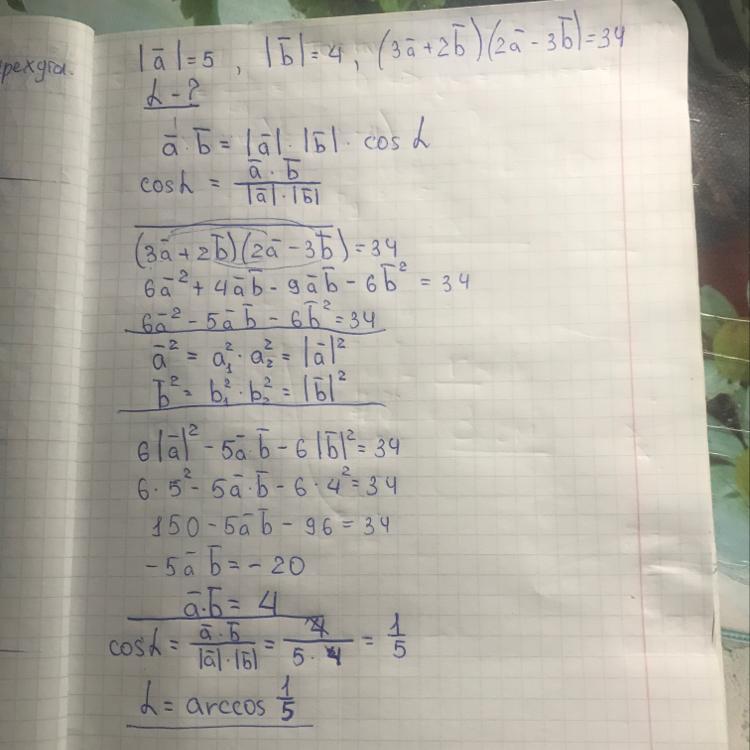 |ā|=5 , |b̄|=4, (3ā+2b̄)(2ā-3b̄)=34
α-?
ā·b̄ = |ā|·|b̄|· cos α
cos α = ā·b̄ / |ā|·|b̄|
(3ā+2b̄)(2ā-3b̄)=34
6ā²+4āb̄-9āb̄-6b̄² = 34
6ā²-5āb̄-6b̄²=34
ā² = a₁²·a₂² = |ā|²
b̄² = b₁²·b₂² = |b̄|²
6|ā|²-5ā·b̄-6|b̄|²=34
6·5²-5ā·b̄-6·4²=34
150-5āb̄-96=34
-5āb̄=-20
ā·b̄= 4
cos α = ā·b̄ / |ā|·|b̄| = 4 / 5·4 = 1/5
α = arccos 1/5